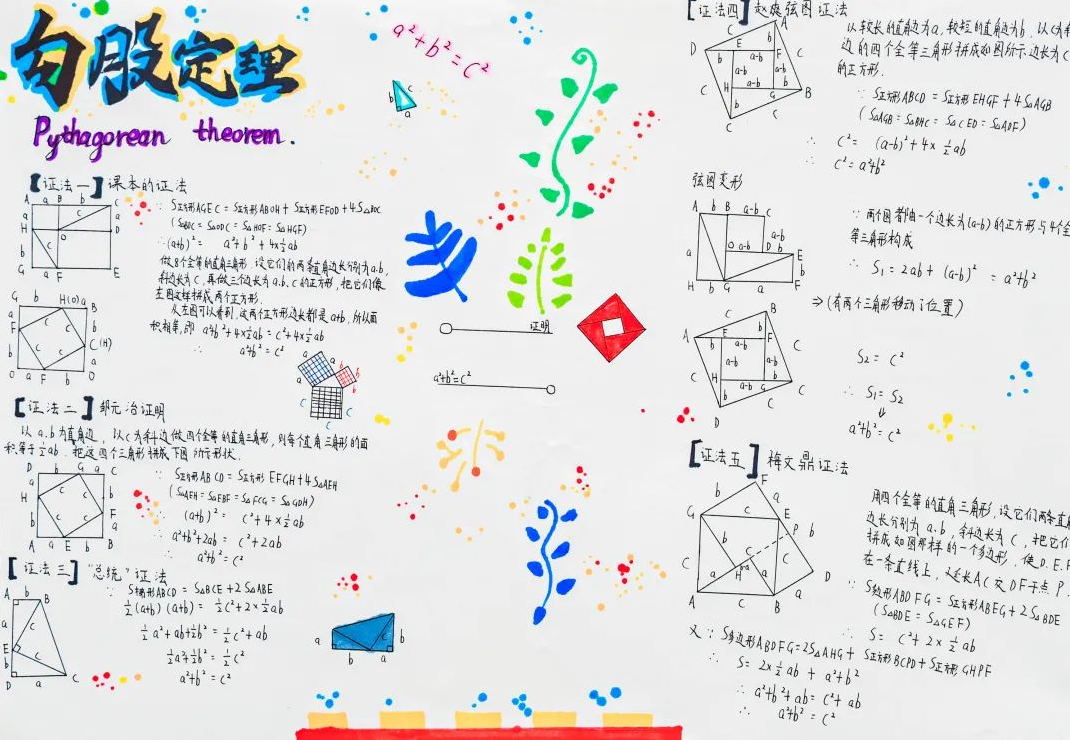 勾股定理
Pythagorean theorem.
a²+b²=c²
【证法一】课本的证法
∵ S正方形AGEC = S正方形ABOH + S正方形EFOD + 4S△BOC
(S△BOC = S△ODC = S△HOF = S△HGF)
∴ (a+b)² = a²+b²+4×½ab
做8个全等的直角三角形，设它们的两条直角边长分别为a.b，
斜边长为c，再做三个边长为a.b.c的正方形，把它们像
左图这样拼成两个正方形.
从左图可以看到，这两个正方形边长都是a+b，所以面
积相等，即 a²+b²+4×½ab = c²+4×½ab
∴ a²+b²=c²
【证法二】邹元治证明
以a.b为直角边，以c为斜边做四个全等的直角三角形，则每个直角三角形的面
积等于½ab. 把这四个三角形拼成下图所示形状.
∵ S正方形ABCD = S正方形EFGH+4S△AEH
(S△AEH = S△EBF = S△FCG = S△GDH)
∴ (a+b)² = c²+4×½ab
∴ a²+b²+2ab = c²+2ab
∴ a²+b²=c²
【证法三】"总统"证法
∵ S梯形ABCD = S△BCE + 2S△ABE
½(a+b)(a+b) = ½c²+2×½ab
½a²+ab+½b² = ½c²+ab
½a²+½b² = ½c²
a²+b² = c²
证明
a²+b²=c²
【证法四】赵爽弦图证法
以较长的直角边为a，较短的直角边为b，以c为斜
边的四个全等三角形拼成如图所示边长为c
的正方形.
∵ S正方形ABCD = S正方形EHGF + 4S△AGB
(S△AGB = S△BHC = S△CED = S△ADF)
∴ c² = (a-b)²+4×½ab
∴ c²=a²+b²
弦图变形
∵ 两个图都由一个边长为(a-b)的正方形与4个全
等三角形构成
∴ S₁=2ab+(a-b)² = a²+b²
⇒(有两个三角形移动了位置)
S₂ = c²
∴ S₁=S₂
⇓
a²+b²=c²
【证法五】梅文鼎证法
用四个全等的直角三角形，设它们两条直角
边长分别为a.b，斜边长为c，把它们
拼成如图那样的一个多边形，使D.E.F
在一条直线上，延长AC交DF于点P.
∵ S多边形ABDFG = S正方形ABEG + 2S△BDE
(S△BDE = S△GEF)
∴ S = c²+2×½ab
又∵ S多边形ABDFG=2S△AHG+ S正方形BCPD+S正方形GHPF
∴ S=2×½ab + a²+b²
∴ a²+b²+ab = c²+ab
∴ a²+b²=c²